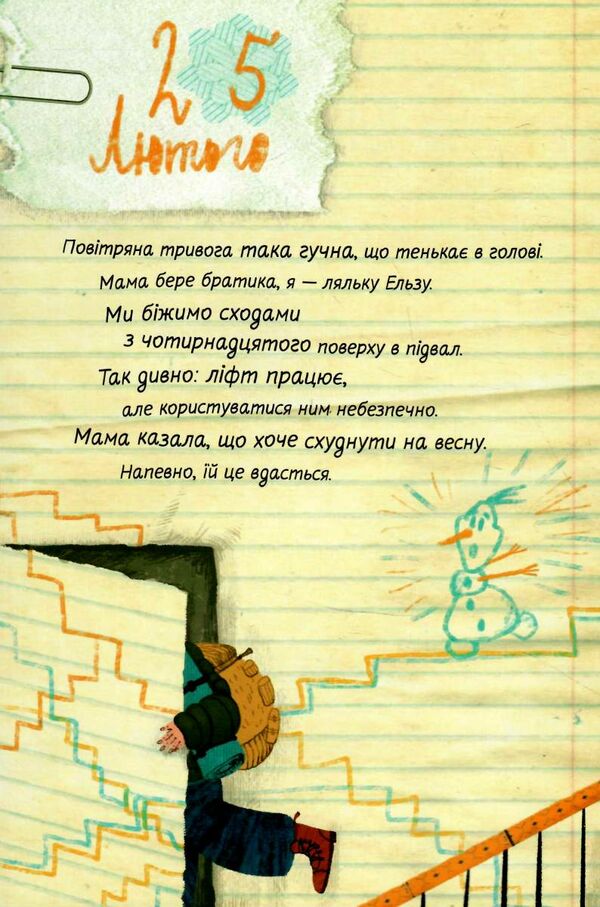 25
Лютого
Повітряна тривога така гучна, що тенькає в голові.
Мама бере братика, я — ляльку Ельзу.
Ми біжимо сходами
з чотирнадцятого поверху в підвал.
Так дивно: ліфт працює,
але користуватися ним небезпечно.
Мама казала, що хоче схуднути на весну.
Напевно, їй це вдасться.